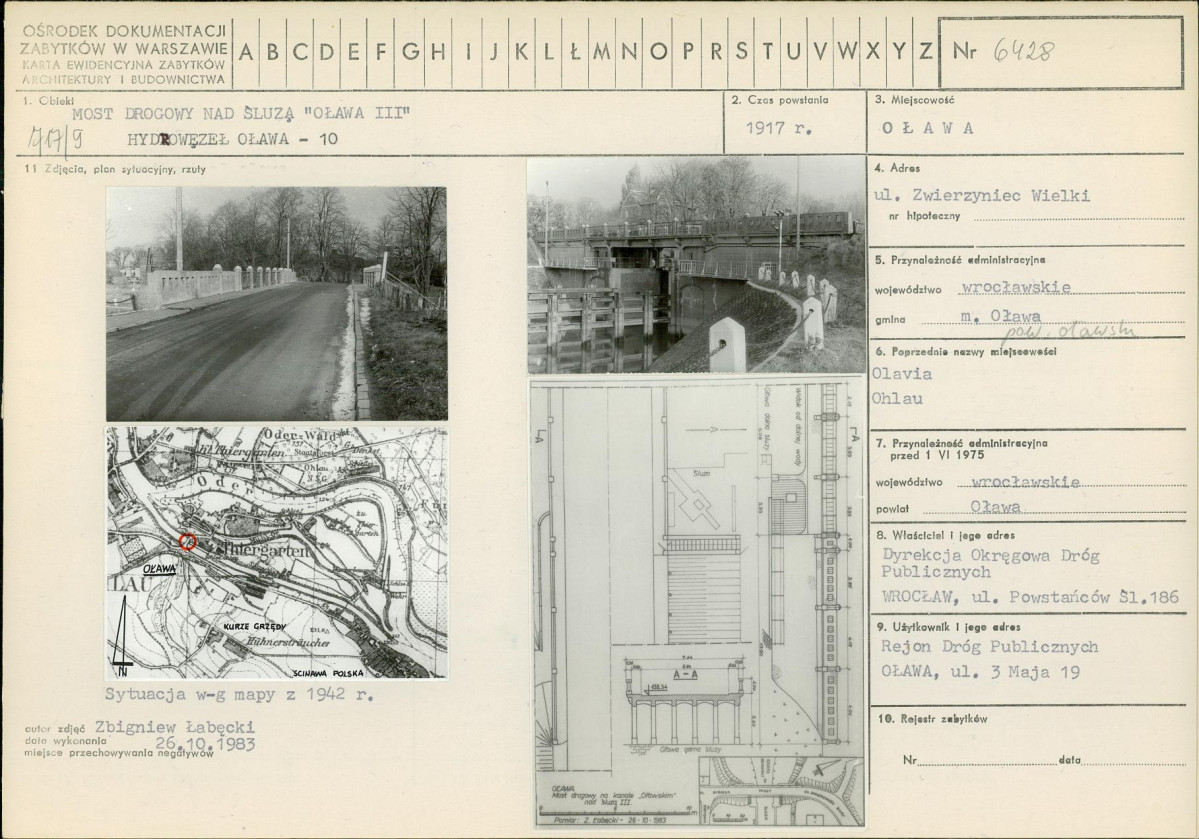 OŚRODEK DOKUMENTACJI
ZABYTKÓW W WARSZAWIE
KARTA EWIDENCYJNA ZABYTKÓW
ARCHITEKTURY I BUDOWNICTWA
A B C D E F G H I J K L Ł M N O P R S T U V W X Y Z
Nr 6428
1. Obiekt
MOST DROGOWY NAD ŚLUZĄ "OŁAWA III"
HYDROWĘZEŁ OŁAWA - 10
717/9
2. Czas powstania
1917 r.
3. Miejscowość
OŁAWA
11 Zdjęcia, plan sytuacyjny, rzuty
4. Adres
ul. Zwierzyniec Wielki
nr hipoteczny
5. Przynależność administracyjna
województwo wrocławskie
gmina m. Oława
pow. oławski
6. Poprzednie nazwy miejscowości
Olavia
Ohlau
7. Przynależność administracyjna
przed 1 VI 1975
województwo wrocławskie
powiat Oława
8. Właściciel i jego adres
Dyrekcja Okręgowa Dróg
Publicznych
WROCŁAW, ul. Powstańców Śl.186
9. Użytkownik i jego adres
Rejon Dróg Publicznych
OŁAWA, ul. 3 Maja 19
10. Rejestr zabytków
Nr data
Oder-Wald
Kl. Thiergarten
Ohlau
Oder
Thiergarten
OŁAWA
LAU
KURZE GRZĘDY
Hühnersträucher
ŚCINAWA POLSKA
N
Sytuacja w-g mapy z 1942 r.
autor zdjęć Zbigniew Łabęcki
data wykonania 26.10.1983
miejsce przechowywania negatywów
A
A
Widok od dolnej wody
Głowa dolna śluzy
Śluza
A-A
Głowa górna śluzy
OŁAWA
Most drogowy na kanale „Oławskim"
nad śluzą III.
Pomiar: Z. Łabęcki - 26-10-1983